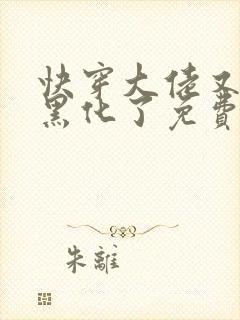 快穿大佬又
黑化了免費
朱離